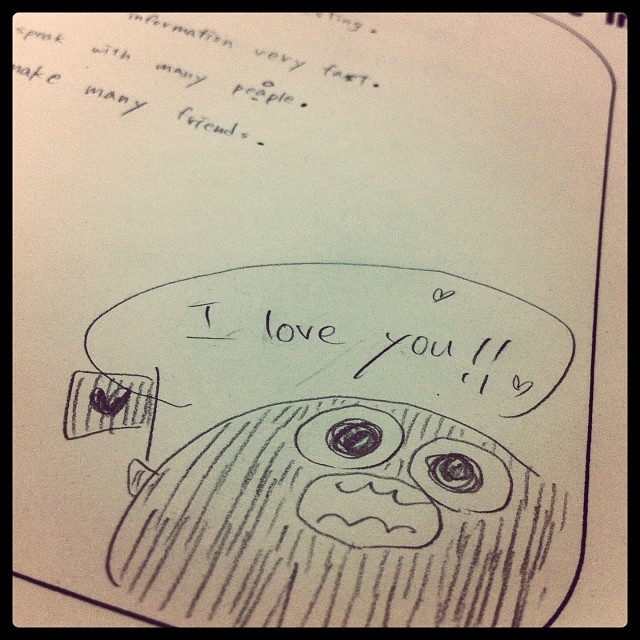 information very fast.
speak with many people.
make many friends.
I love you!!